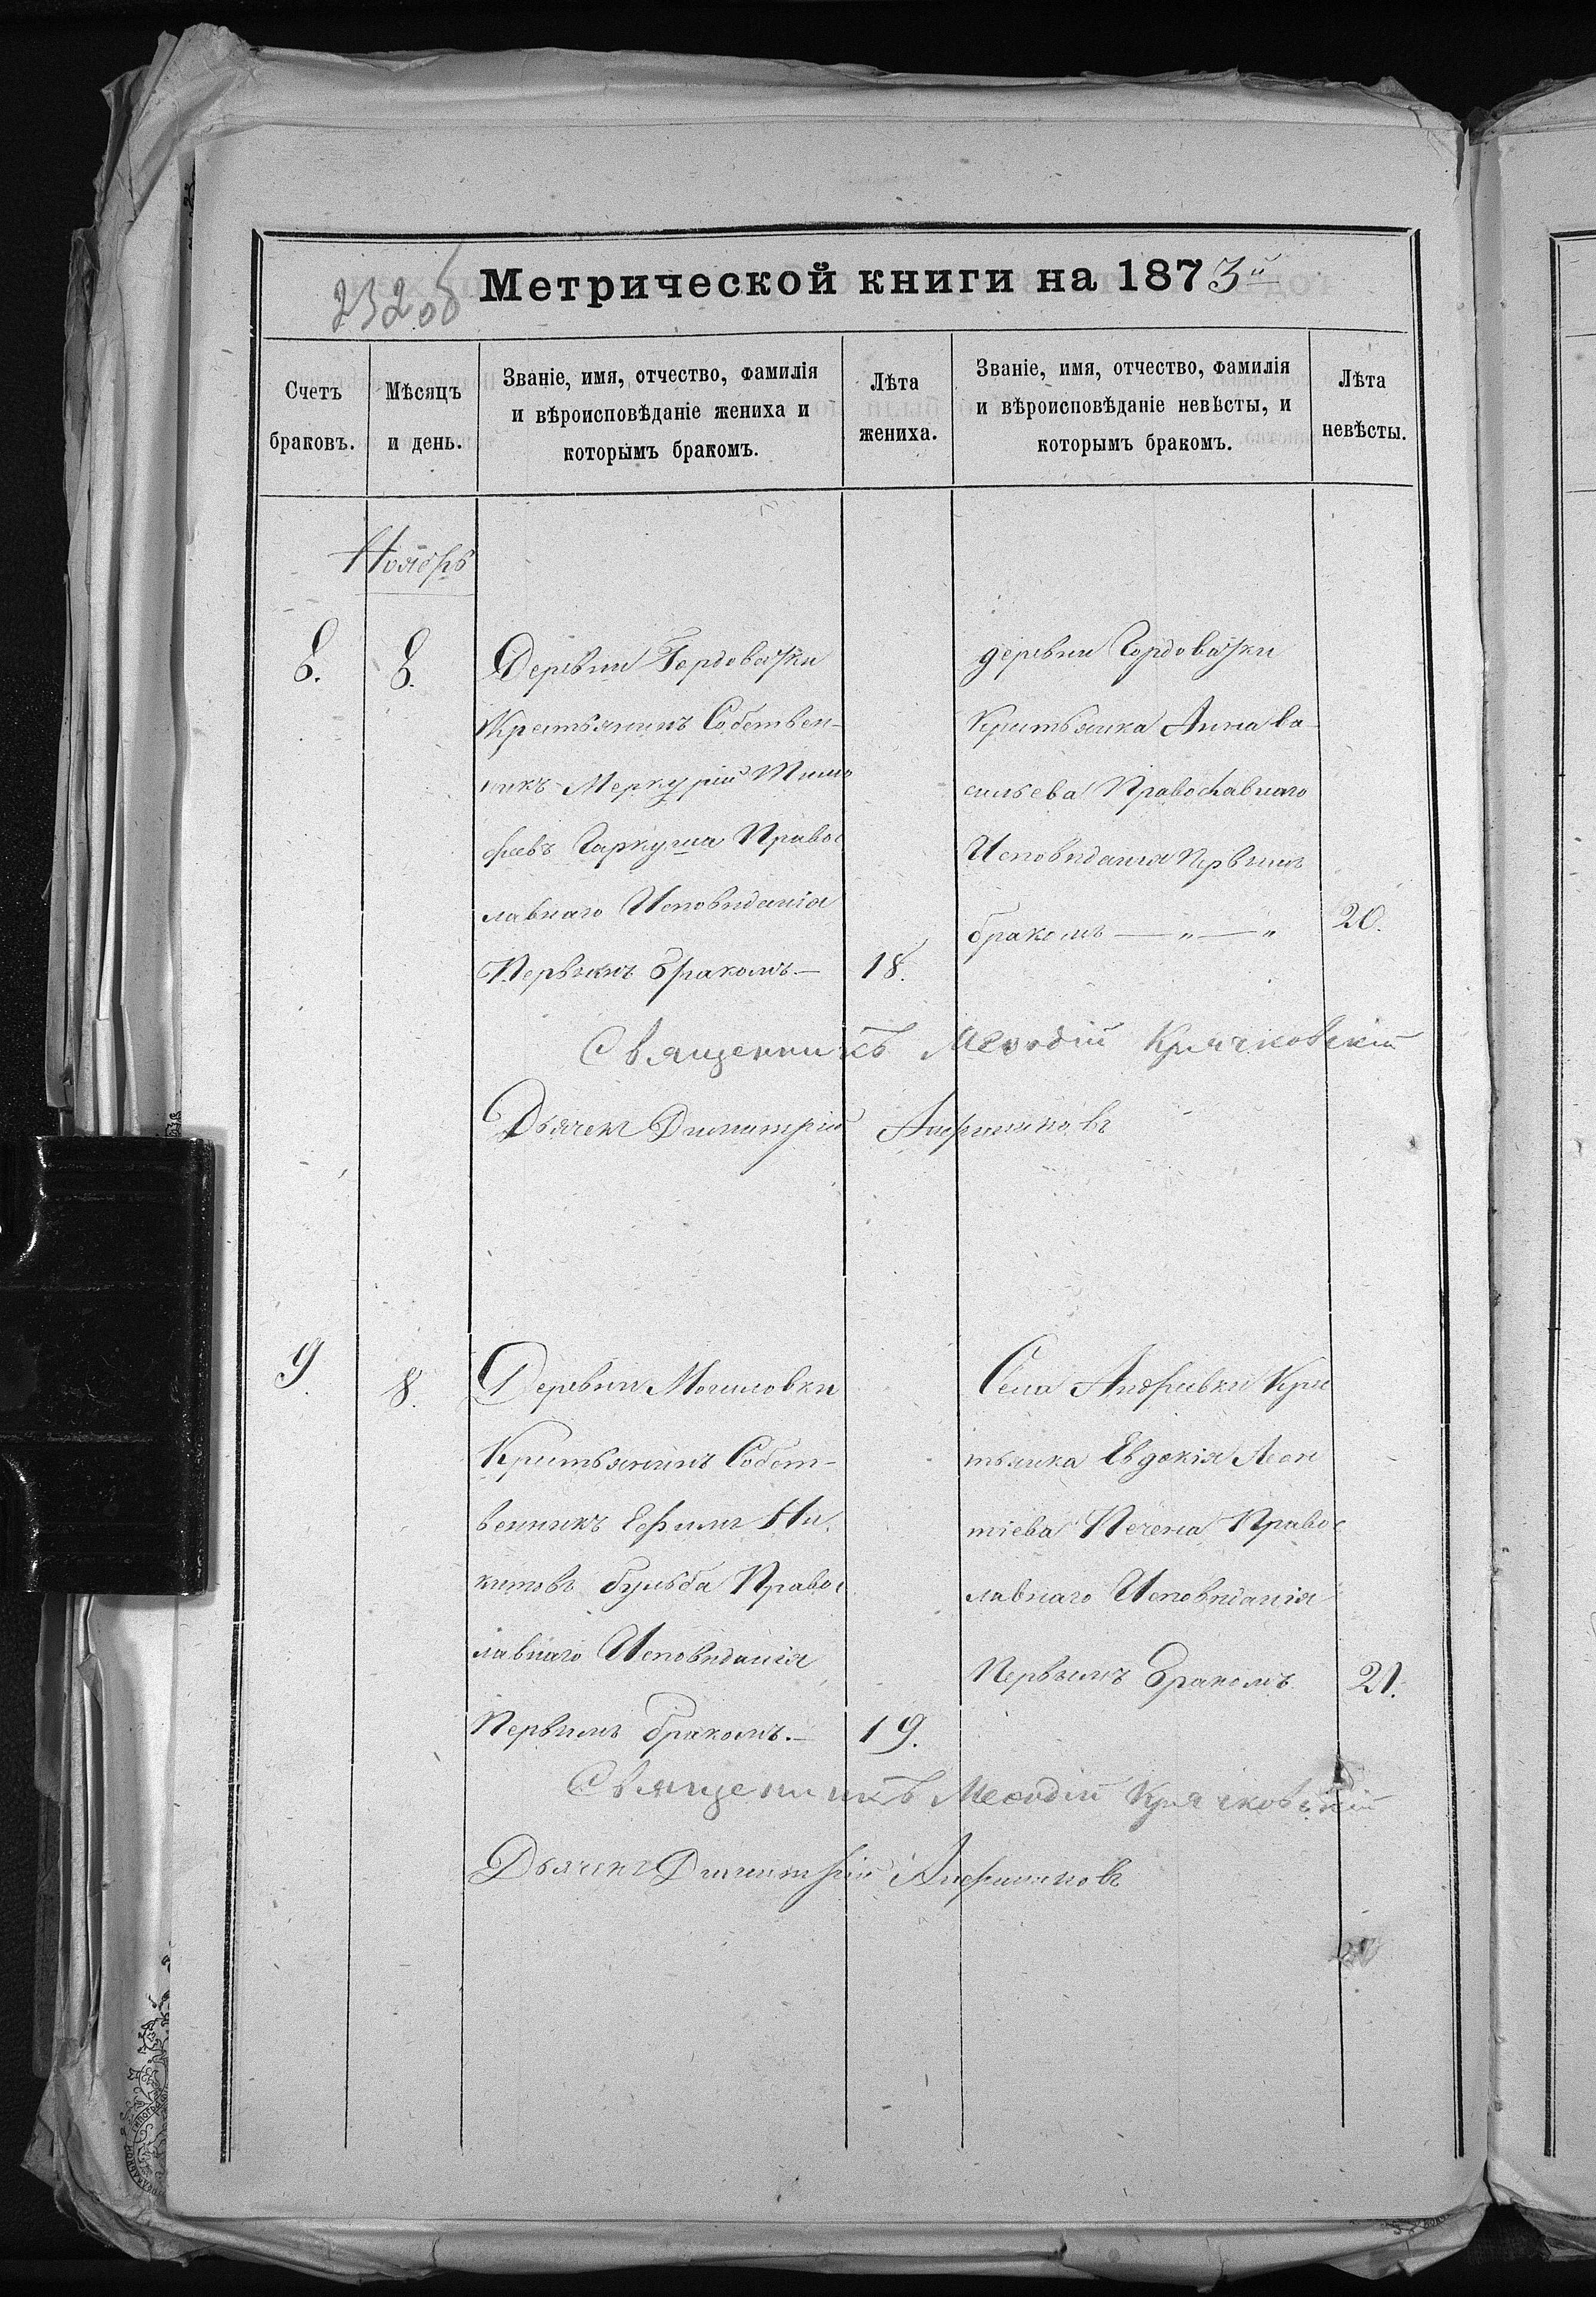 232об
Метрической книги на 1873й
Счетъ браковъ.
Мѣсяцъ и день.
Званіе, имя, отчество, фамилія
и вѣроисповѣданіе жениха и
которымъ бракомъ.
Лѣта жениха.
Званіе, имя, отчество, фамилія
и вѣроисповѣданіе невѣсты, и
которымъ бракомъ.
Лѣта невѣсты.
Ноябрь
8.
8.
Деревни
Крестьянинъ Собствен-
никъ Меркурій Тимо
феевъ Гаркуша Правос
лавнаго Исповиданія
Первимъ бракомъ.—
18.
деревни
Критьянка Анна Ва
сильева Православнаго
Исповиданія Первимъ
бракомъ — „ — „
20.
Священникъ Меѳодій Крячковскій
Дьячекъ Димитрій
9.
8.
Деревни Могиловки
Критьянинъ Собст-
венникъ Ефимъ Ни
китовъ бульба Правос
лавнаго Исповиданія
Первимъ бракомъ.—
19.
Села Андривки Кри
тьянка Евдокія Леон
тіева Печена Правос
лавнаго Исповиданія
Первимъ бракомъ
21.
Священникъ Меѳодій Крячковскій
Дьячекъ Димитрій